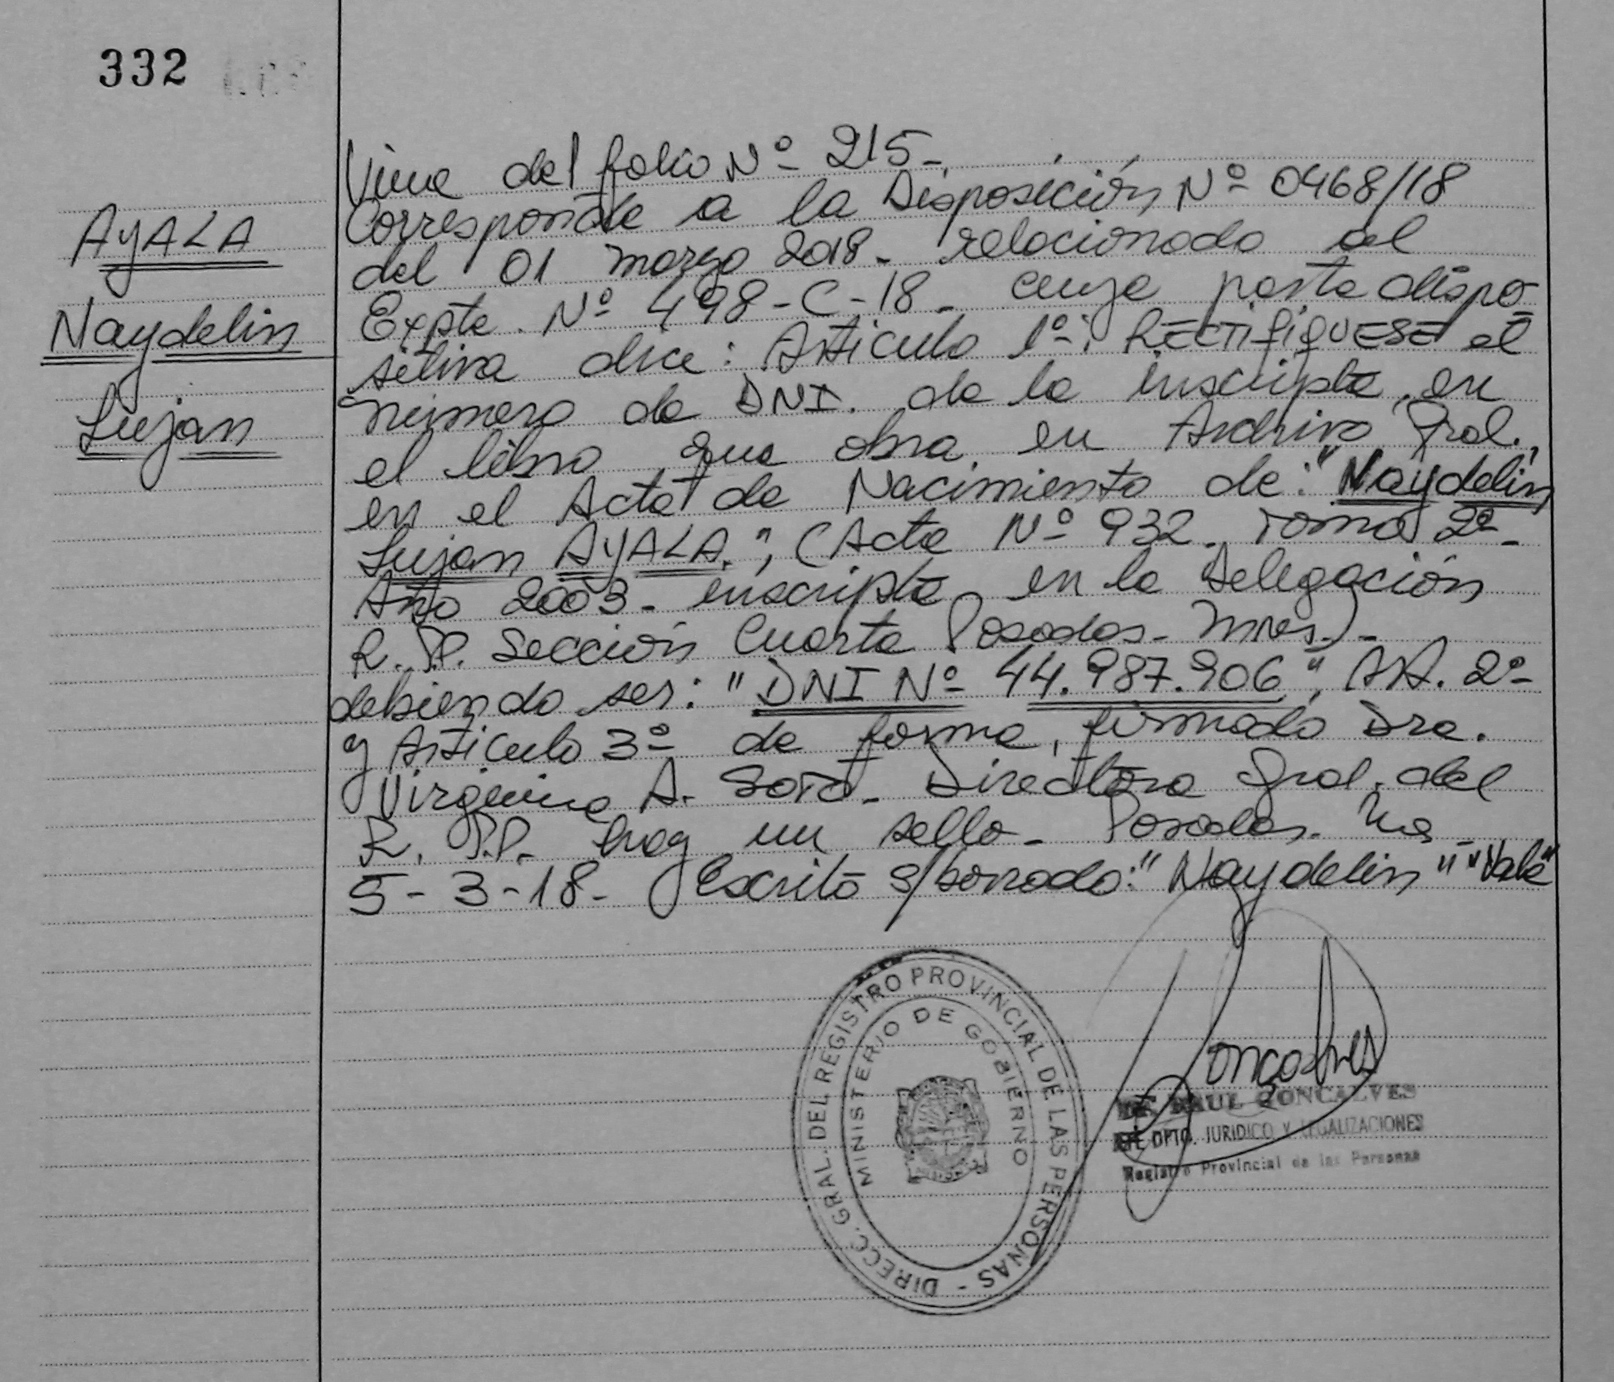 332
AYALA
Naydelin
Lujan
Viene del folio Nº 215-
Corresponde a la Disposición Nº 0468/18
del 01 marzo 2018- relacionado al
Expte. Nº 498-C-18- cuya parte dispo-
sitiva dice: Articulo 1º: RECTIFIQUESE el
número de DNI. de la inscripta, en
el libro que obra en Archivo Gral.,
en el Acta de Nacimiento de: "Naydelin
Lujan AYALA.", (Acta Nº 932- Tomo 2º-
Año 2003- inscripta en la Delegación
R.P.P. Sección Cuarta Posadas- Mnes.)-
debiendo ser: "DNI Nº 44.987.906", Art. 2º
y Articulo 3º de forma, firmado Dra.
Virginia A. Soto- Directora Gral. del
R.P.P. hay un sello- Posadas- Ms-
5-3-18- Escrito s/borrado: "Naydelin" "Vale"
DIRECC. GRAL. DEL REGISTRO PROVINCIAL DE LAS PERSONAS -
MINISTERIO DE GOBIERNO
Goncalves
RAUL GONCALVES
DPTO. JURIDICO Y LEGALIZACIONES
Registro Provincial de las Personas